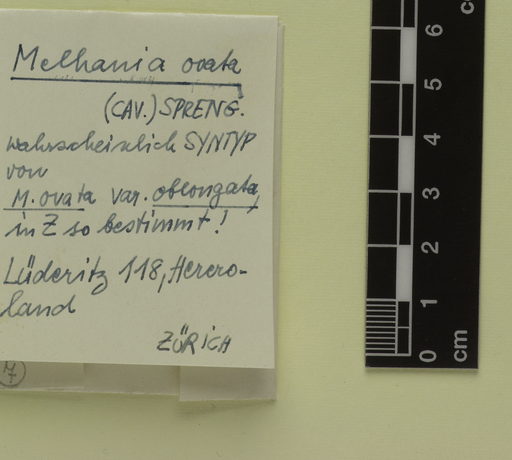 Melhania ovata
(CAV.) SPRENG.
wahrscheinlich SYNTYP
von
M. ovata var. oblongata,
in Z so bestimmt!
Lüderitz 118, Herero-
land
ZÜRICH
6
5
4
3
2
1
0
cm